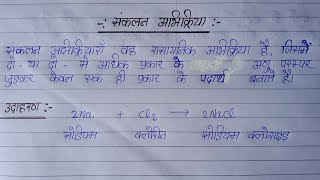 -: संकलन अभिक्रिया :-
संकलन अभिक्रियाएँ वह रासायनिक अभिक्रिया है, जिसमें
दो या दो से अधिक प्रकार के अणु परस्पर
जुड़कर केवल एक ही प्रकार के पदार्थ बनाते है।
उदाहरण : 2Na + Cl₂ → 2NaCl
सोडियम क्लोरीन सोडियम क्लोराइड